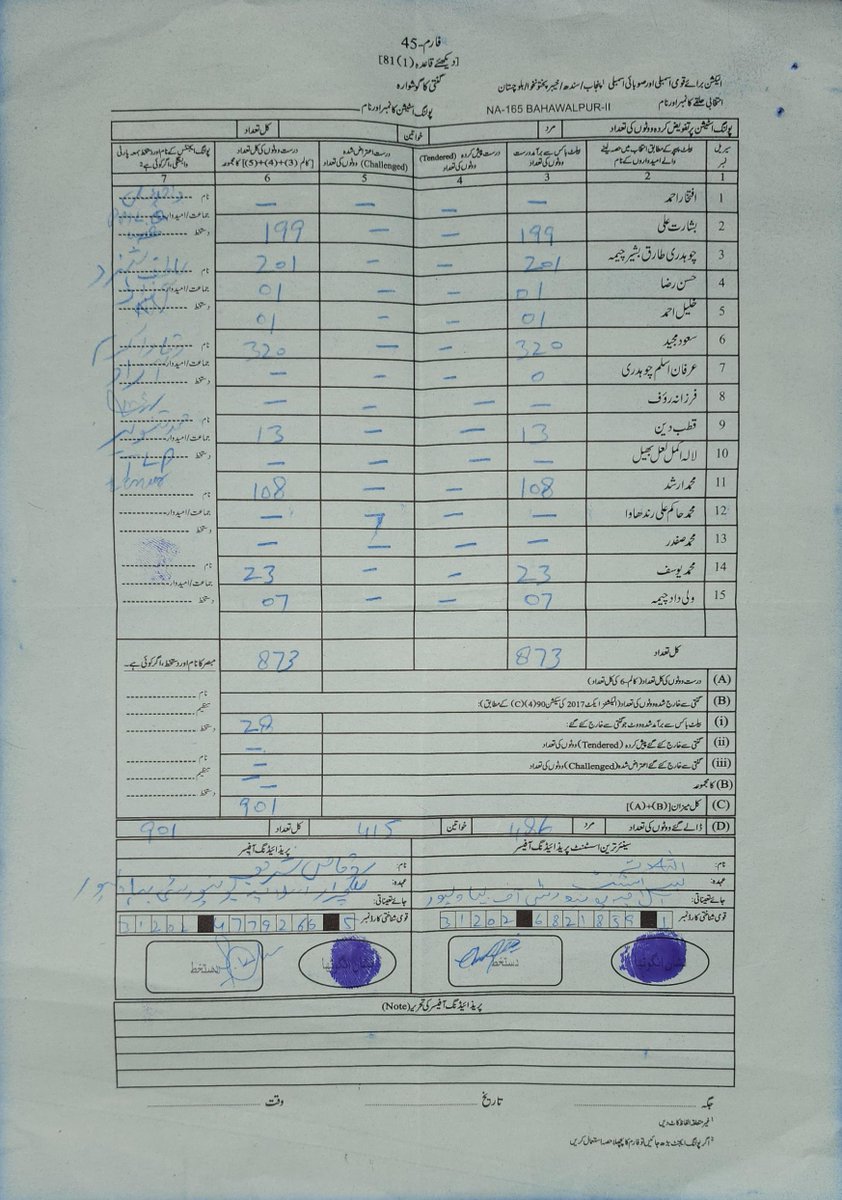 فارم-45
[دیکھئے قاعدہ 81(1)]
گنتی کا گوشوارہ
الیکشن برائے قومی اسمبلی اور صوبائی اسمبلی پنجاب/سندھ/خیبر پختونخوا/بلوچستان
انتخابی حلقے کا نمبر اور نام NA-165 BAHAWALPUR-II پولنگ اسٹیشن کا نمبر اور نام
پولنگ اسٹیشن پر تفویض کردہ ووٹوں کی تعداد مرد خواتین کل تعداد
سیریل نمبر | بیلٹ پیپر کے مطابق انتخاب میں حصہ لینے والے امیدواروں کے نام | بیلٹ باکس سے برآمد درست ووٹوں کی تعداد | درست پیش کردہ (Tendered) ووٹوں کی تعداد | درست اعتراض شدہ (Challenged) ووٹوں کی تعداد | درست ووٹوں کی کل تعداد [کالم (3)+(4)+(5)] کا مجموعہ | پولنگ ایجنٹس کے نام اور دستخط بمعہ پارٹی وابستگی، اگر کوئی ہے²
1 2 3 4 5 6 7
1 افتخار احمد – – – – نام
2 بشارت علی 199 – – 199 جماعت/امیدوار دستخط
3 چوہدری طارق بشیر چیمہ 201 – – 201 نام
4 حسن رضا 01 – – 01 جماعت/امیدوار
5 خلیل احمد 01 – – 01 دستخط
6 سعود مجید 320 – – 320 نام
7 عرفان اسلم چوہدری 0 – – – جماعت/امیدوار آزاد دستخط
8 فرزانہ رؤف – – – –
9 قطب دین 13 – – 13 نام جماعت/امیدوار
10 لالہ اکمل لعل بھیل – – – – دستخط TLP
11 محمد ارشد 108 – – 108 نام
12 محمد حاکم علی رندھاوا – – – جماعت/امیدوار
13 محمد صفدر – – – – دستخط
14 محمد یوسف 23 – – 23 نام جماعت/امیدوار
15 ولی داد چیمہ 07 – – 07 دستخط
کل تعداد 873 873 مبصر کا نام اور دستخط، اگر کوئی ہے۔
(A) درست ووٹوں کی کل تعداد (کالم-6 کی کل تعداد)
(B) گنتی سے خارج شدہ ووٹوں کی تعداد (الیکشنز ایکٹ 2017 کی سیکشن 90(4)(C) کے مطابق): نام تنظیم
(i) بیلٹ باکس سے برآمد شدہ ووٹ جو گنتی سے خارج کئے گئے: 28 دستخط
(ii) گنتی سے خارج کئے گئے پیش کردہ (Tendered) ووٹوں کی تعداد –
(iii) گنتی سے خارج کئے گئے اعتراض شدہ (Challenged) ووٹوں کی تعداد – نام تنظیم
(B) کا مجموعہ – دستخط
(C) کل میزان [(A)+(B)] 901
(D) ڈالے گئے ووٹوں کی تعداد مرد 486 خواتین 415 کل تعداد 901
سینئر ترین اسسٹنٹ پریذائیڈنگ آفیسر پریذائیڈنگ آفیسر
نام: نام:
عہدہ: عہدہ:
جائے تعیناتی: جائے تعیناتی:
قومی شناختی کارڈ نمبر 31202 6821839 1 قومی شناختی کارڈ نمبر 31202 4779266 5
دستخط نشان انگوٹھا دستخط نشان انگوٹھا
پریذائیڈنگ آفیسر کی تحریر (Note)
جگہ تاریخ وقت
¹ غیر متعلقہ الفاظ کاٹ دیں
² اگر پولنگ ایجنٹ بڑھ جائیں تو فارم کا پچھلا حصہ استعمال کریں